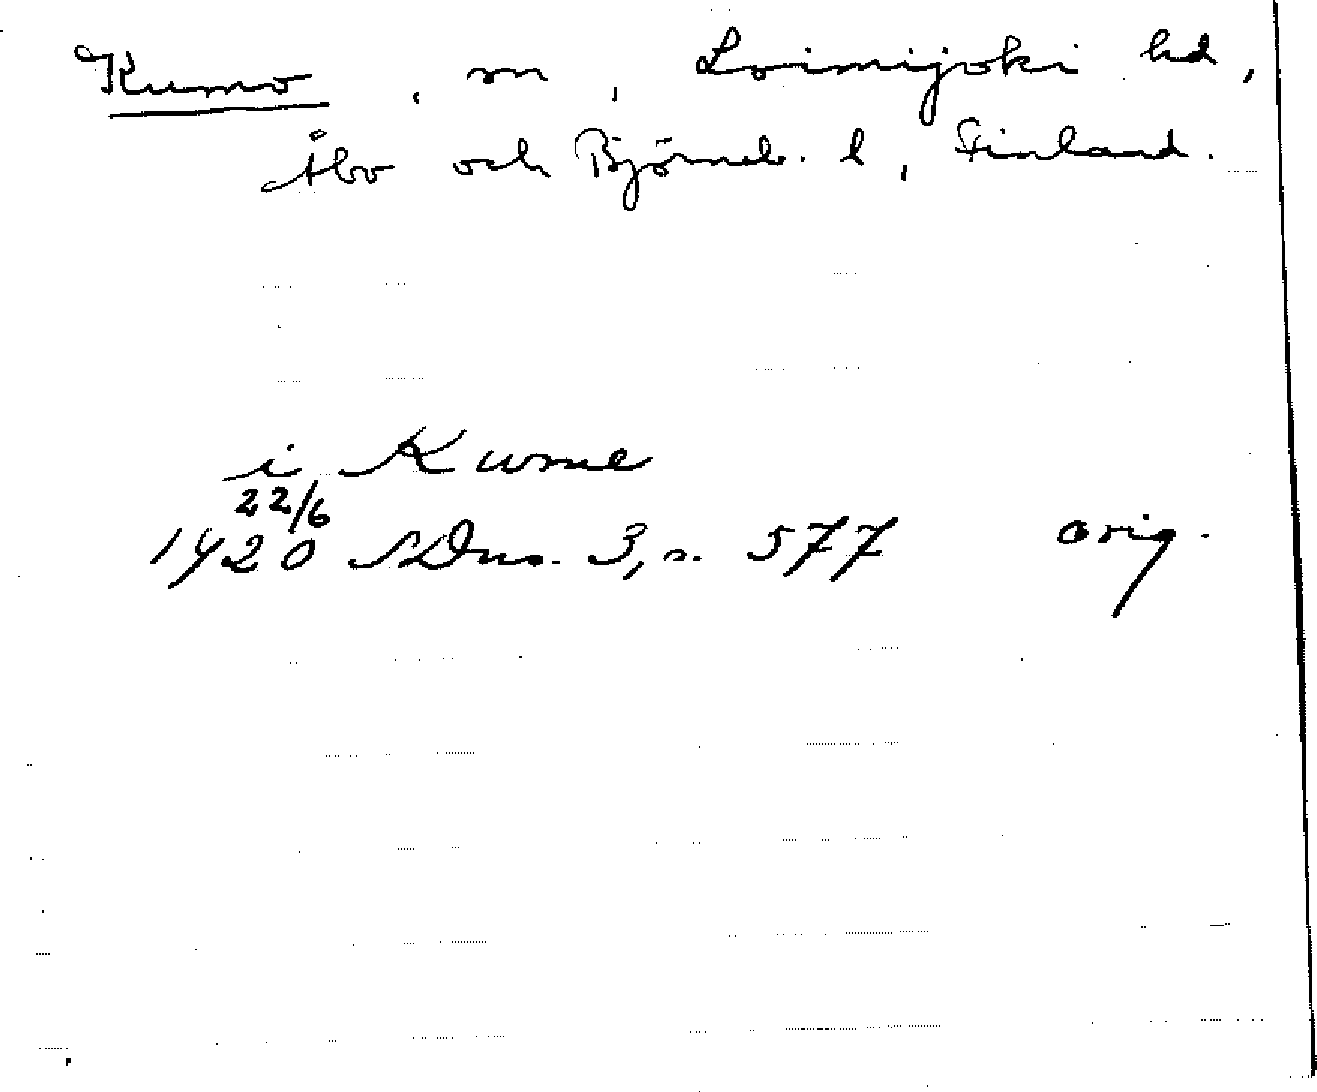 Kumo, sn, Loimijoki hd,
Åbo och Björneb. l, Finland.
i Kume
22/6
1420 SDns. 3, s. 577 orig.